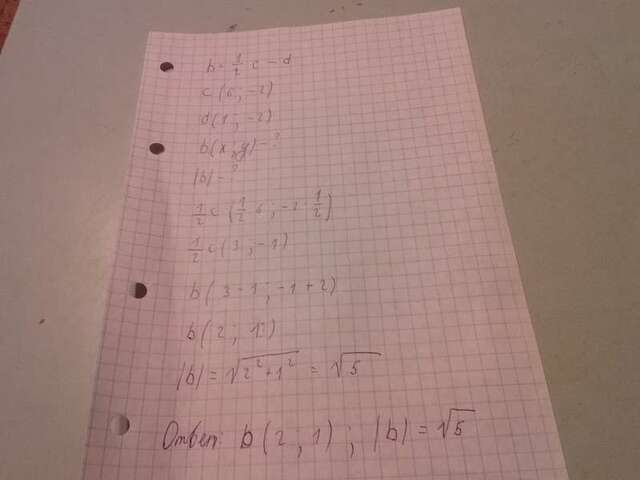 b = 1/2 c - d
c (6 ; -2)
d (1 ; -2)
b (x ; y) - ?
|b| - ?
1/2 c (1/2 · 6 ; -2 · 1/2)
1/2 c (3 ; -1)
b (3 - 1 ; -1 + 2)
b (2 ; 1)
|b| = √2² + 1² = √5
Ответ: b (2 ; 1) ; |b| = √5